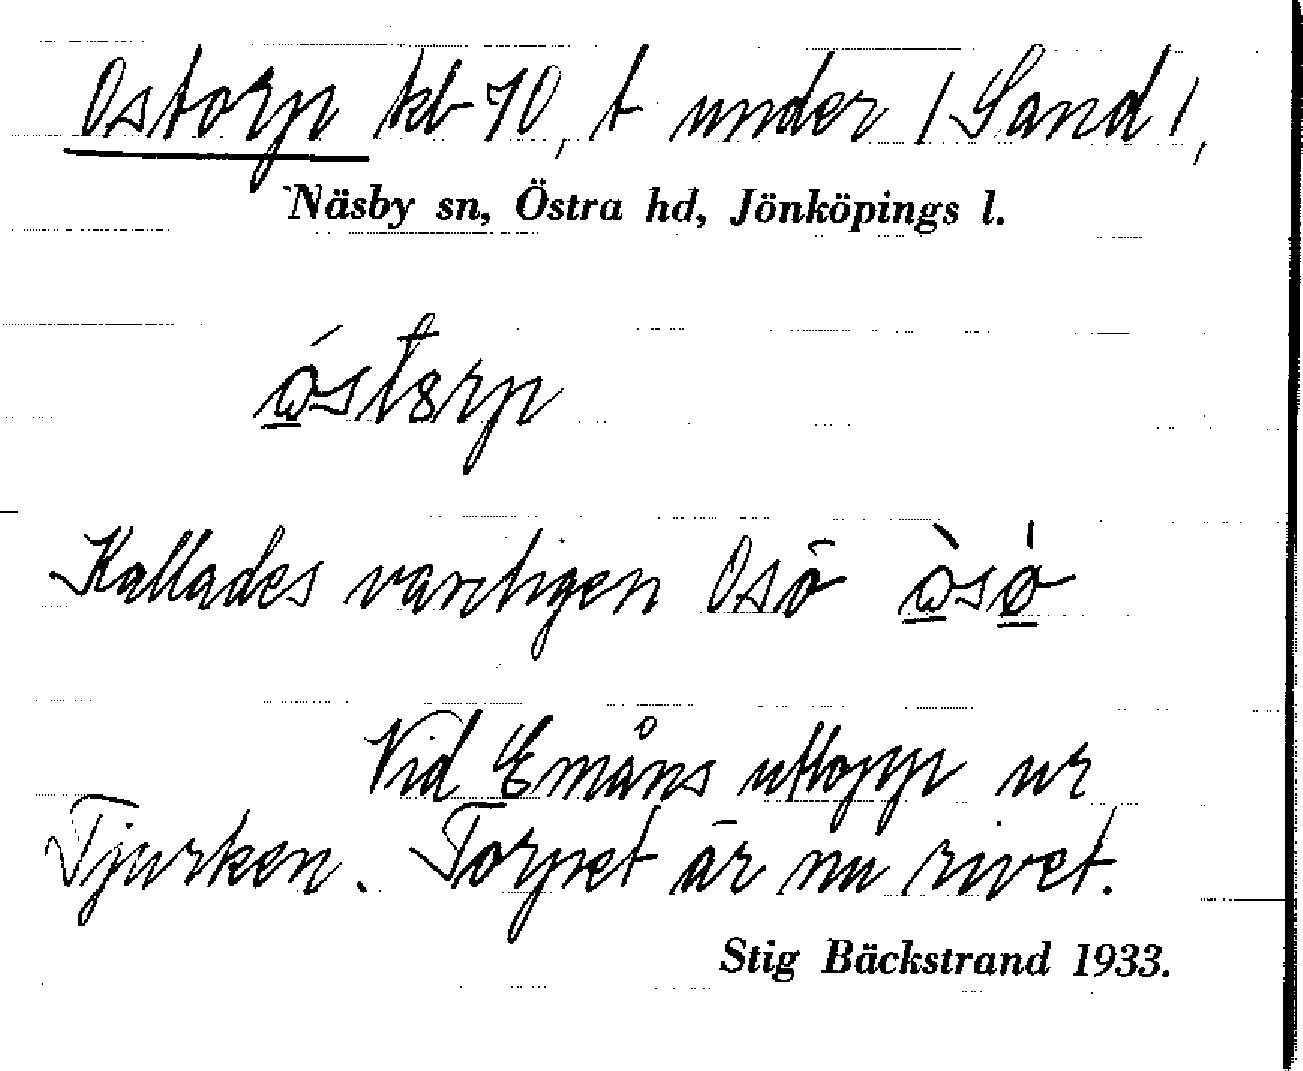 Ostorp kb 70, t under /Sand/,
Näsby sn, Östra hd, Jönköpings l.
óstorp
Kallades vanligen Osö òsó
Vid Emåns utlopp ur
Tjurken. Torpet är nu rivet.
Stig Bäckstrand 1933.